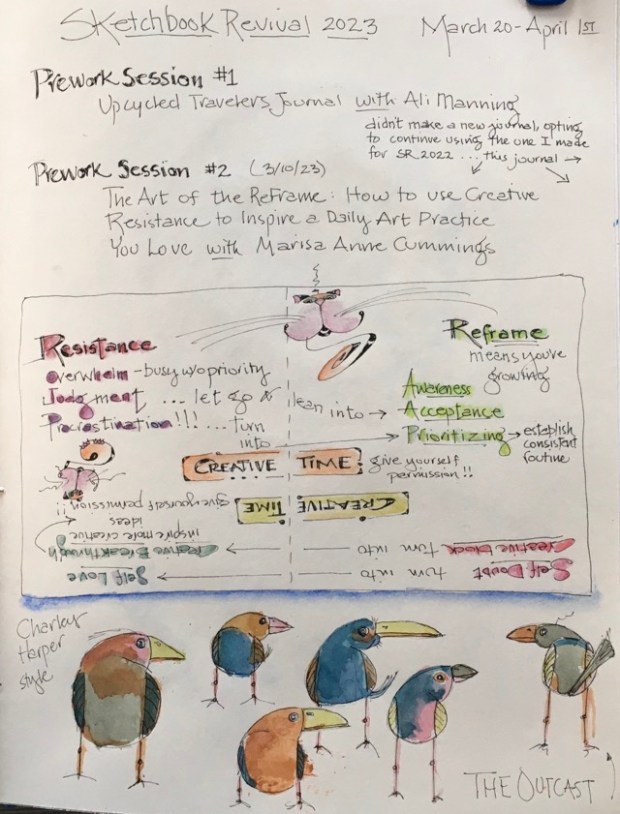 Sketchbook Revival 2023 March 20 - April 1ST
Prework Session #1
Upcycled Travelers Journal with Ali Manning
didn't make a new journal, opting
to continue using the one I made
for SR 2022 ... this journal →
Prework Session #2 (3/10/23)
The Art of the ReFrame: How to use Creative
Resistance to Inspire a Daily Art Practice
You Love with Marisa Anne Cummings
Resistance
Overwhelm - busy w/o priority
Judgment ... let go &
Procrastination!!! ... turn
into
lean into →
Reframe
means you're
growing
Awareness
Acceptance
Prioritizing → establish
consistent
routine
CREATIVE TIME: give yourself
permission!!
CREATIVE TIME: give yourself permission!!
Creative block turn into → Creative Breakthrough
inspire more creative
ideas
Self Doubt turn into → Self Love
Charley
Harper
style
THE OUTCAST